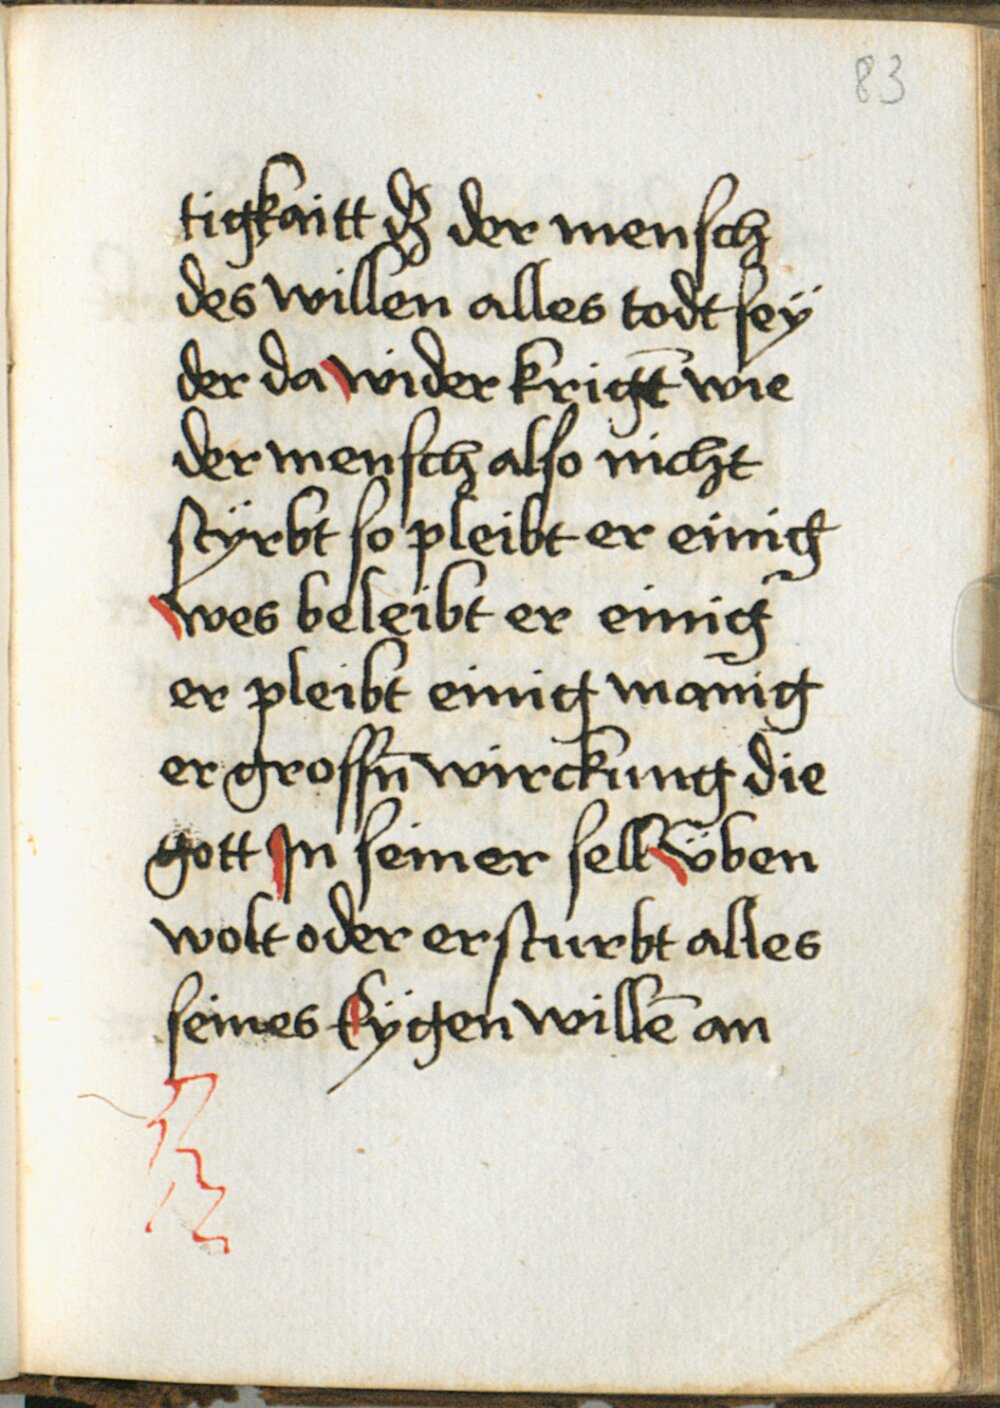 83
tigkaitt dz der mensch
des willen alles todt seÿ
der da wider krigt̄ wie
der mensch also nicht
stÿrbt so pleibt er einig
wes beleibt er einig
er pleibt einig manig
er grossn̄ wirckung die
gott In seiner sell üben
wolt oder ersturbt alles
seines Eÿgen willē an